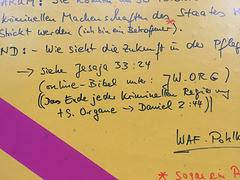 kriminellen Machenschaften des Staates
stickt werden (ich bin ein Betroffener).
ND: - Wie sieht die Zukunft in der Pfleg
→ siehe Jesaja 33:24
(online-Bibel unter: JW.ORG)
(Das Ende jeder kriminellen Regierung
+ S. Organe → Daniel 2:44))
WAF. Pohlk
* Sogar ein P